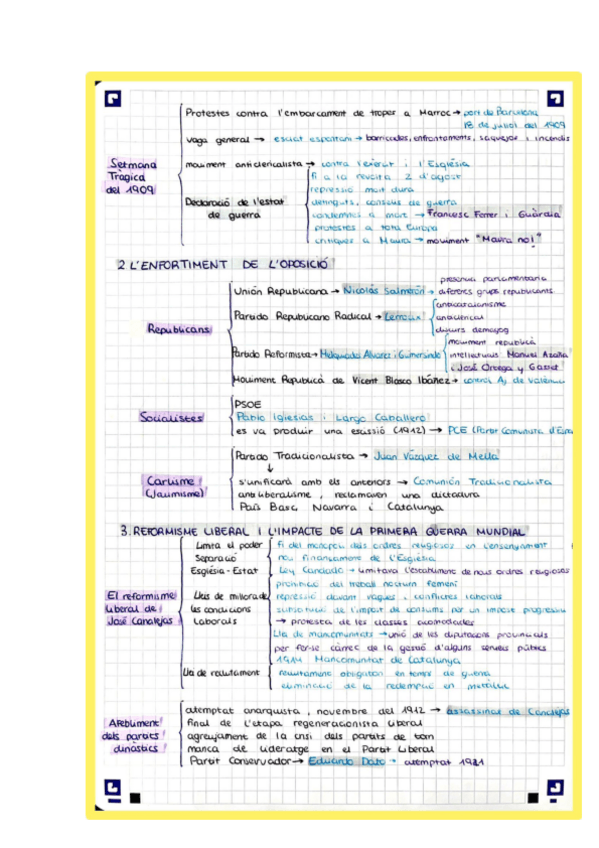 Protestes contra l'embarcament de tropes a Marroc → port de Barcelona
18 de juliol del 1909
vaga general → esclat espontani → barricades, enfrontaments, saquejos i incendis
Setmana Tràgica del 1909
moviment anticlericalista → contra l'exèrcit i l'Església
fi a la revolta 2 d'agost
repressió molt dura
Declaració de l'estat de guerra
detinguts, consells de guerra
condemnes a mort → Francesc Ferrer i Guàrdia
protestes a tota Europa
crítiques a Maura → moviment "Maura no!"
2 L'ENFORTIMENT DE L'OPOSICIÓ
presència parlamentària
Unión Republicana → Nicolás Salmerón → diferents grups republicants
anticatalanisme
Partido Republicano Radical → Lerroux
anticlerical
discurs demagog
Republicans
moviment republicà
Partido Reformista → Melquíades Álvarez i Gumersindo
intel·lectuals Manuel Azaña
i José Ortega y Gasset
Moviment Republicà de Vicent Blasco Ibáñez → control Aj. de València
PSOE
Socialistes
Pablo Iglesias i Largo Caballero
es va produir una escissió (1912) → PCE (Partit Comunista d'Espa
Partido Tradicionalista → Juan Vázquez de Mella
↓
Carlisme (Jaumisme)
s'unificarà amb els anteriors → Comunión Tradicionalista
antiliberalisme, reclamaven una dictadura
País Basc, Navarra i Catalunya
3. REFORMISME LIBERAL I L'IMPACTE DE LA PRIMERA GUERRA MUNDIAL
Limita el poder
fi del monopoli dels ordres religiosos en l'ensenyament
Separació
nou finançament de l'Església
Església - Estat
Ley Candado → limitava l'establiment de nous ordres religiosos
prohibició del treball nocturn femení
El reformisme liberal de José Canalejas
Lleis de millora de les condicions laborals
repressió davant vagues i conflictes laborals
substitució de l'impost de consums per un impost progressiu
→ protesta de les classes acomodades
Llei de mancomunitats → unió de les diputacions provincials
per fer-se càrrec de la gestió d'alguns serveis públics
1914 Mancomunitat de Catalunya
Llei de reclutament
reclutament obligatori en temps de guerra
eliminació de la redempció en metàl·lic
atemptat anarquista, novembre del 1912 → assassinat de Canalejas
Afebliment dels partits dinàstics
final de l'etapa regeneracionista liberal
agreujament de la crisi dels partits de torn
manca de lideratge en el Partit Liberal
Partit Conservador → Eduardo Dato → atemptat 1921